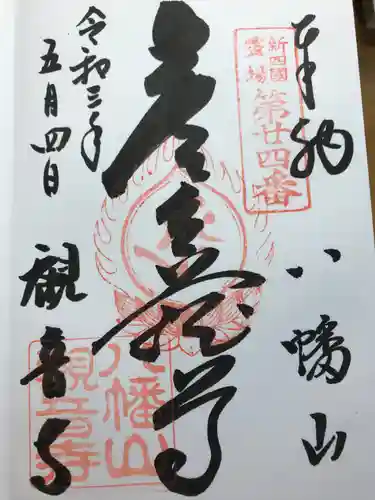 奉納 八幡山
新四國
霊場
第廿四番
虚空蔵尊
令和三年
五月四日
觀音寺
八幡山
觀音寺